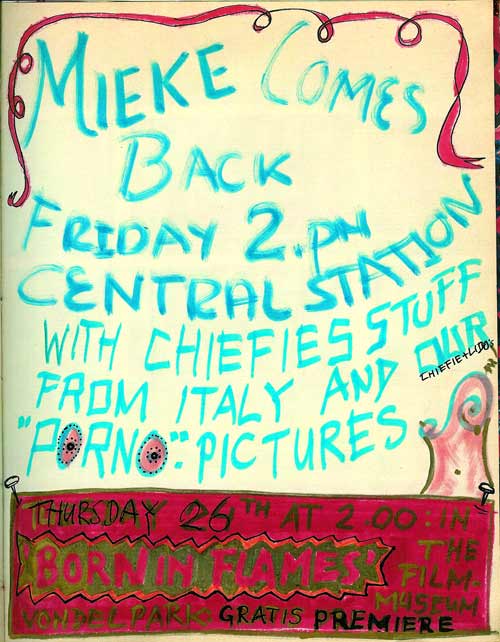 MIEKE COMES
BACK
FRIDAY 2.PM
CENTRAL STATION
WITH CHIEFIES STUFF
FROM ITALY AND OUR
CHIEFIE+LIDO'S
"PORNO": PICTURES
THURSDAY 26TH AT 2.00: IN
"BORN IN FLAMES" THE
FILM-
MUSEUM
VONDELPARK GRATIS PREMIERE